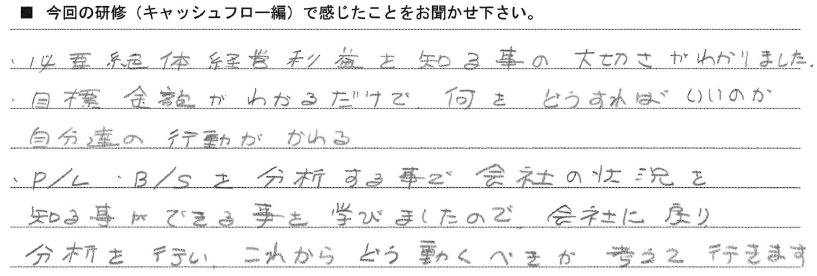 ■ 今回の研修（キャッシュフロー編）で感じたことをお聞かせ下さい。
・必要絶体経営利益を知る事の大切さがわかりました。
・目標金額がわかるだけで、何をどうすればいいのか
自分達の行動がかわる
・P/L・B/Sを分析する事で会社の状況を
知る事ができる事を学びましたので、会社に戻り
分析を行い、これからどう動くべきか考えて行きます